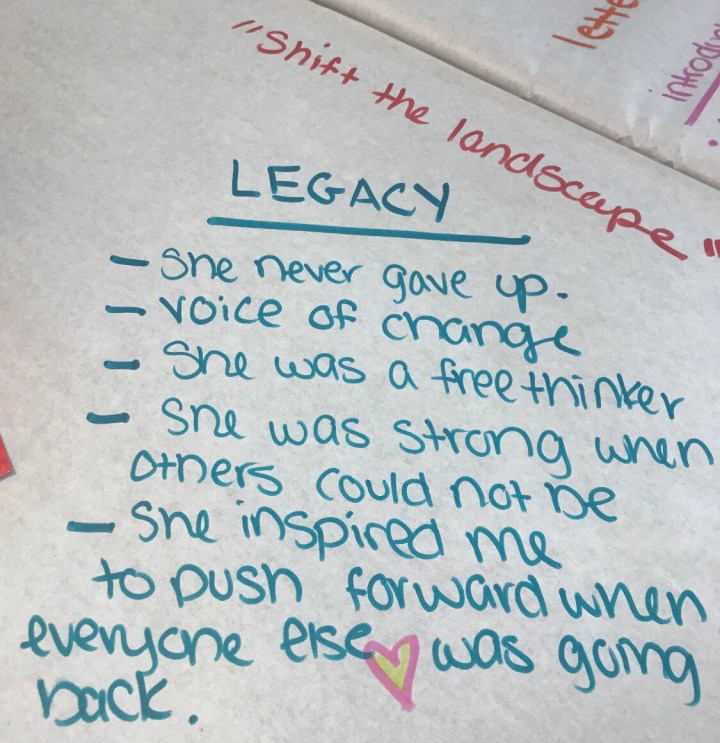 lette
introdu
"Shift the landscape"
LEGACY
- She never gave up.
- voice of change
- She was a free thinker
- She was strong when
others could not be
- She inspired me
to push forward when
everyone else was going
back.